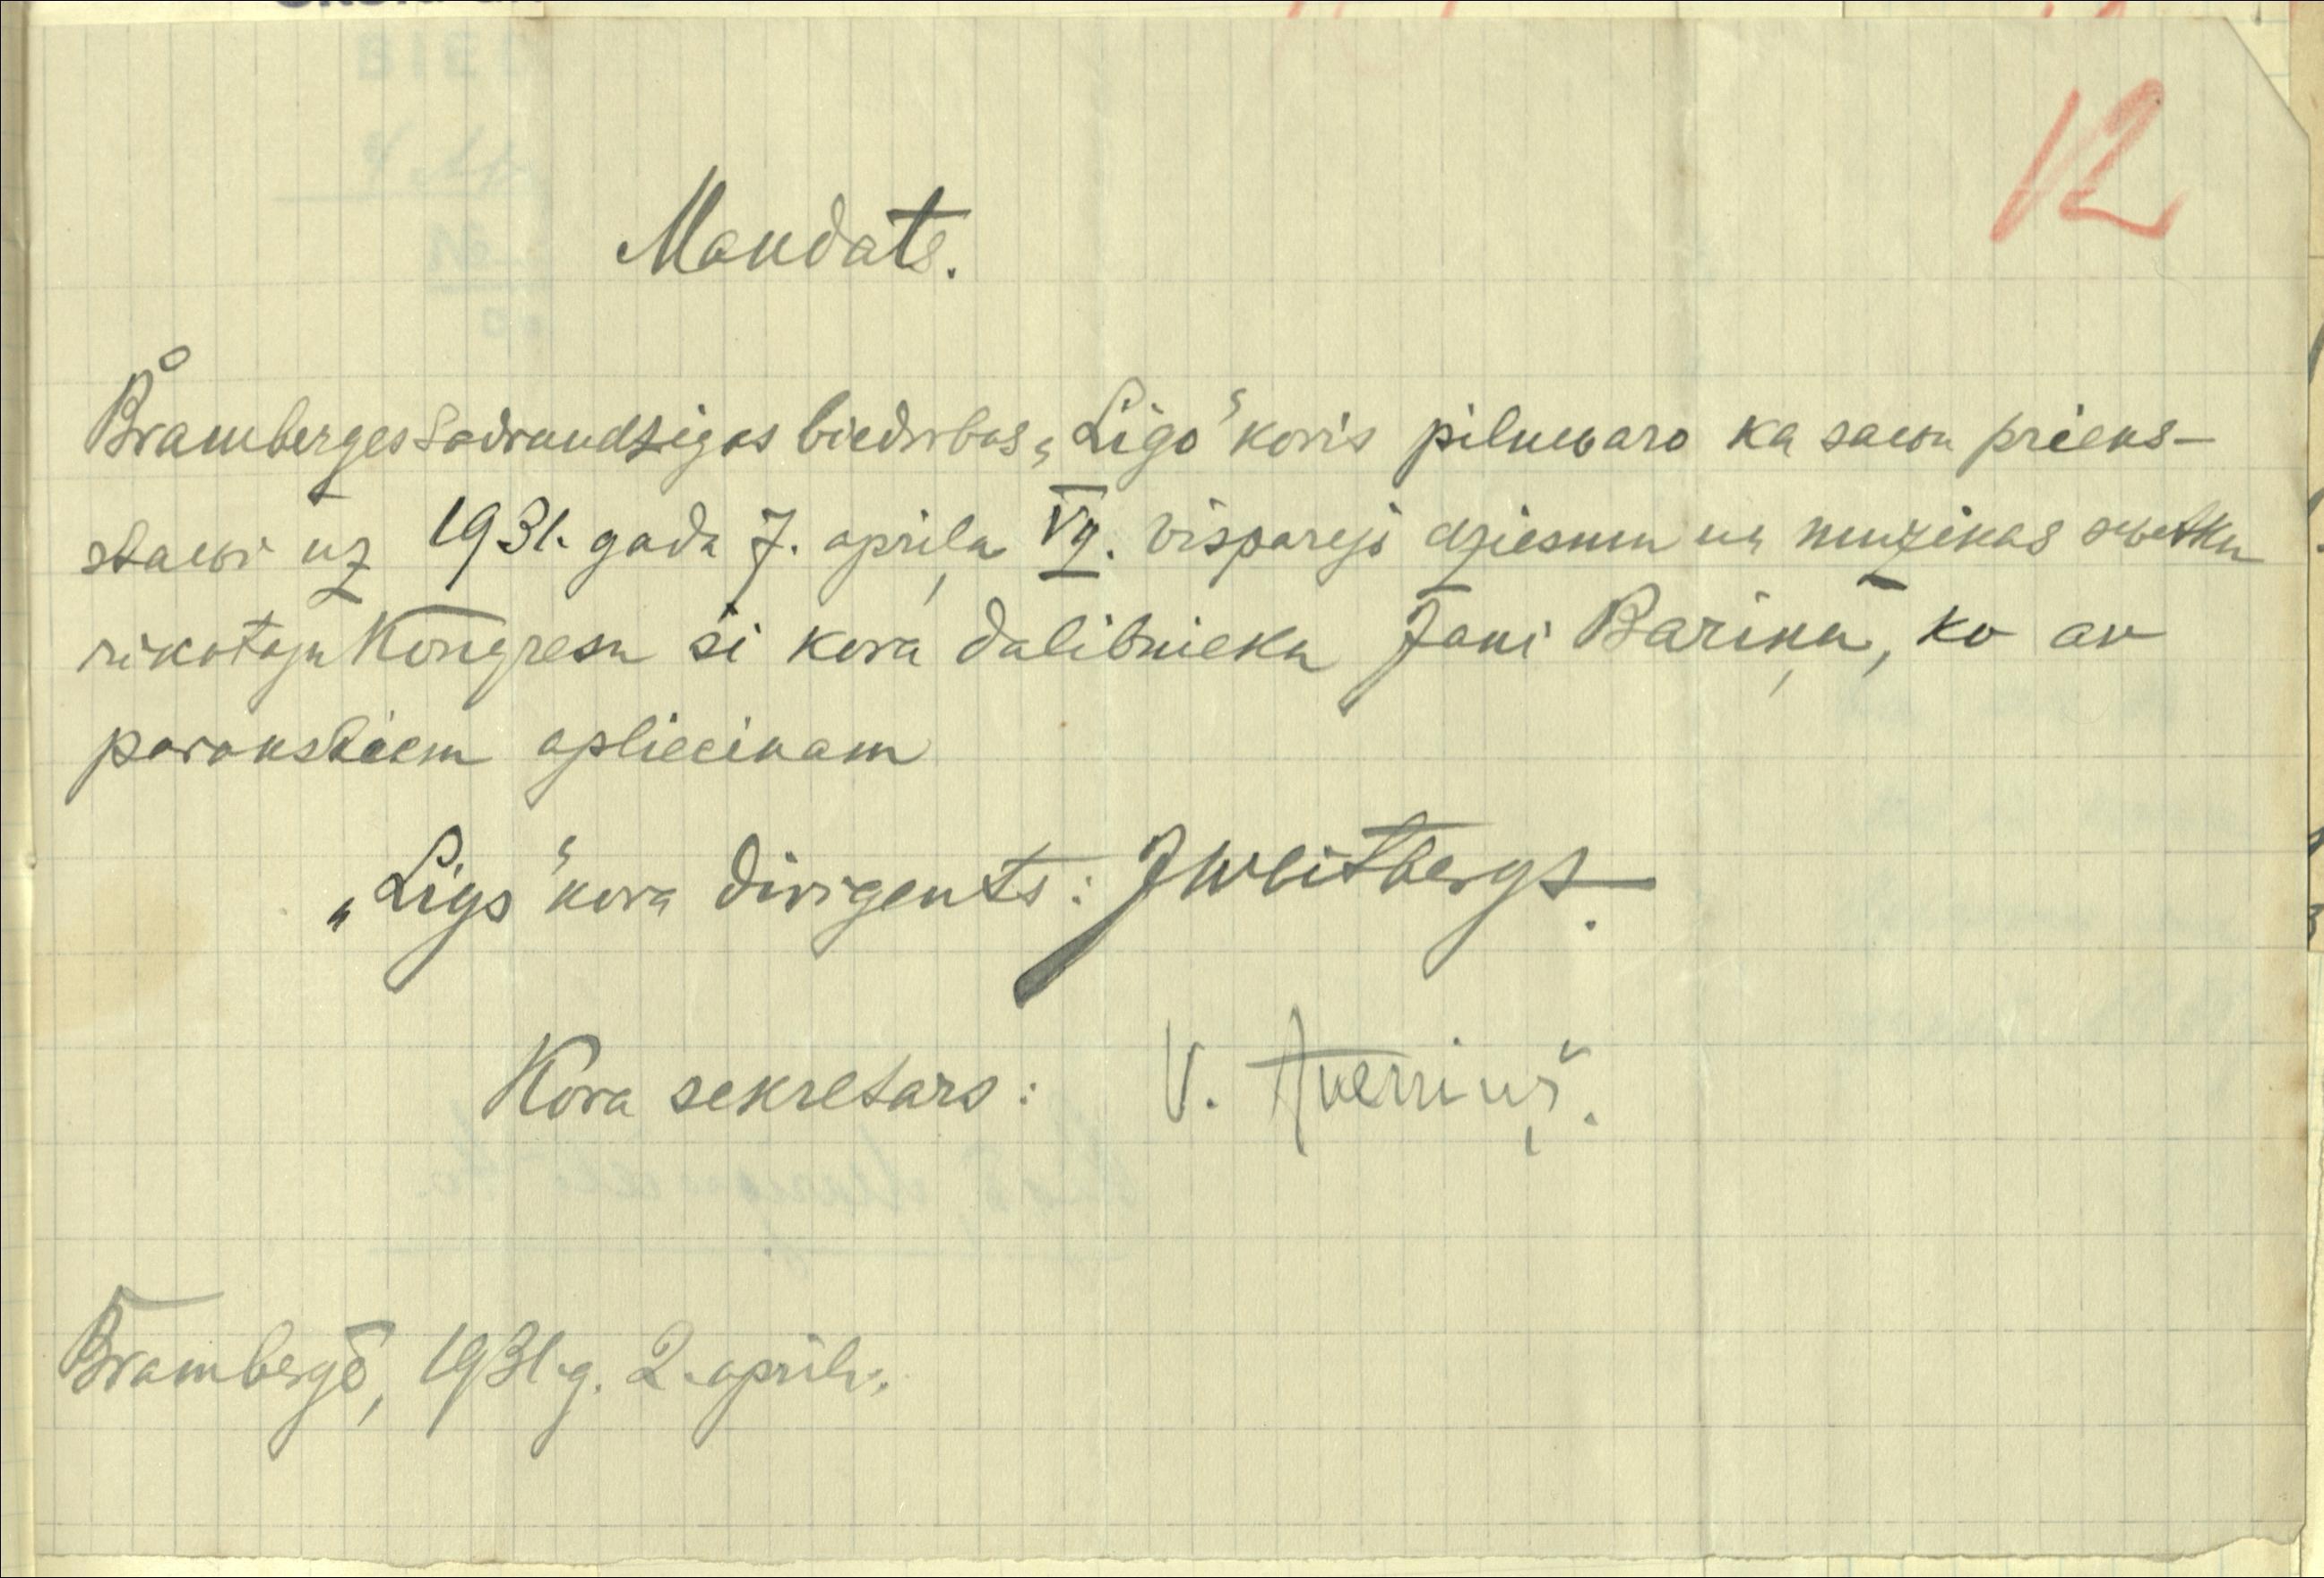 12
Mandats.
Bramberges Sadraudzigas biedrbas „Ligo“ koris pilnwaro ka sawu prieks-
stawi uz 1931. gada 7. apriļa VII. visparejo dziesmu un muzikas swetku
rikotaju Kongresu si kora dalibnieku Jani Bariņu, ko ar
parakstiem apliecinam
„Ligo“ kora dirigents: JWeitbergs.
Kora sekretars: V.
Brambergē, 1931.g. 2. aprilī.